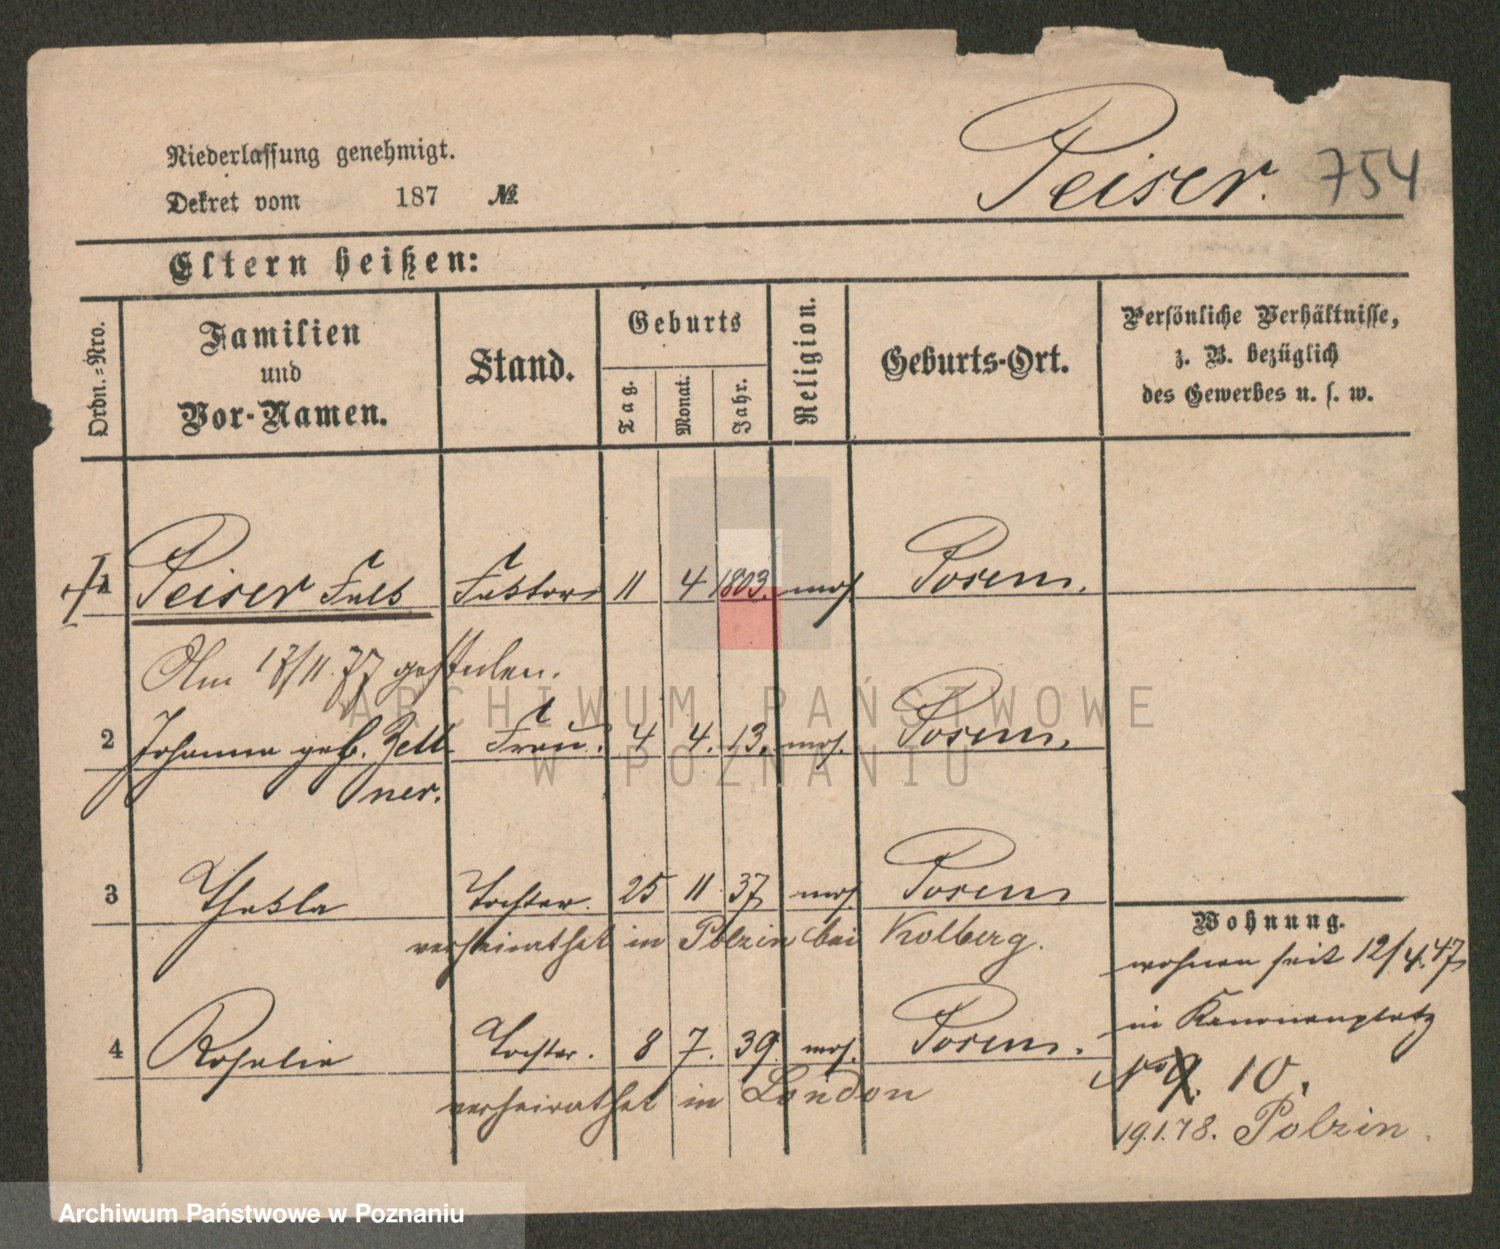 Niederlassung genehmigt.
Dekret vom 187 №
Peiser. 754
Eltern heißen:
Ordn.-Nro.
Familien und Vor-Namen.
Stand.
Geburts
Tag. Monat. Jahr.
Religion.
Geburts-Ort.
Persönliche Verhältnisse,
z. B. bezüglich
des Gewerbes u. s. w.
1 Peiser Falk Faktor 11 4 1803. mos Posen.
Am 17/11 77 gestorben.
2 Johanna geb. Zell- Frau. 4 4. 13. mos. Posen.
ner.
3 Thekla Tochter. 25 11 37 mos Posen
verheirathet in Polzin bei Kolberg.
4 Rosalie Tochter. 8 7. 39. mos. Posen.
verheirathet in London
Wohnung.
wohnen seit 12/4.47
in Kanonenplatz
No 9. 10.
19.1.78. Polzin.
ARCHIWUM PAŃSTWOWE
W POZNANIU
Archiwum Państwowe w Poznaniu